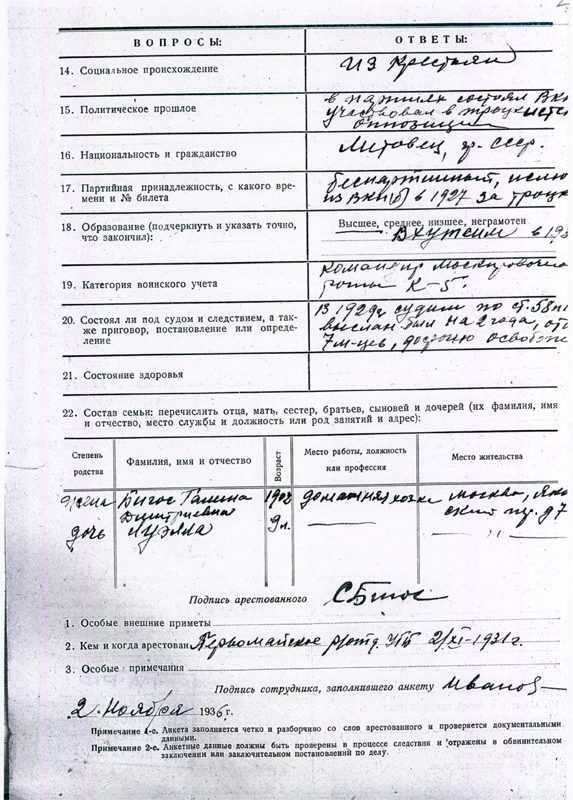 ВОПРОСЫ:
ОТВЕТЫ:
14. Социальное происхождение
из крестьян
15. Политическое прошлое
в партиях состоял ВК
участвовал в троцкистс
оппозиции
16. Национальность и гражданство
Литовец, гр. ссср.
17. Партийная принадлежность, с какого вре-
мени и № билета
беспартийный, исклю
из ВКП(б) в 1927 за троцк
18. Образование (подчеркнуть и указать точно,
что закончил):
Высшее, среднее, низшее, неграмотен
Вхутеин в 193
19. Категория воинского учета
командир маскировочно
роты К-5.
20. Состоял ли под судом и следствием, а так-
же приговор, постановление или опреде-
ление
В 1929г судим по ст. 58
выслан был на 2 года, от
7 м-цев, досрочно освобож
21. Состояние здоровья
22. Состав семьи: перечислить отца, мать, сестер, братьев, сыновей и дочерей (их фамилия, имя
и отчество, место службы и должность или род занятий и адрес):
Степень
родства
Фамилия, имя и отчество
Возраст
Место работы, должность
или профессия
Место жительства
жена Бигос Галина
Дмитриевна
домашняя хозяйка
Москва,
пр. д 7
дочь
9 л.
Подпись арестованного
СБигос
1. Особые внешние приметы
2. Кем и когда арестован Первомайское
3. Особые примечания
Подпись сотрудника, заполнившего анкету Иванов
2. Ноября 1936 г.
Примечание 1-е. Анкета заполняется четко и разборчиво со слов арестованного и проверяется документальными
данными.
Примечание 2-е. Анкетные данные должны быть проверены в процессе следствия и отражены в обвинительном
заключении или заключительном постановлении по делу.